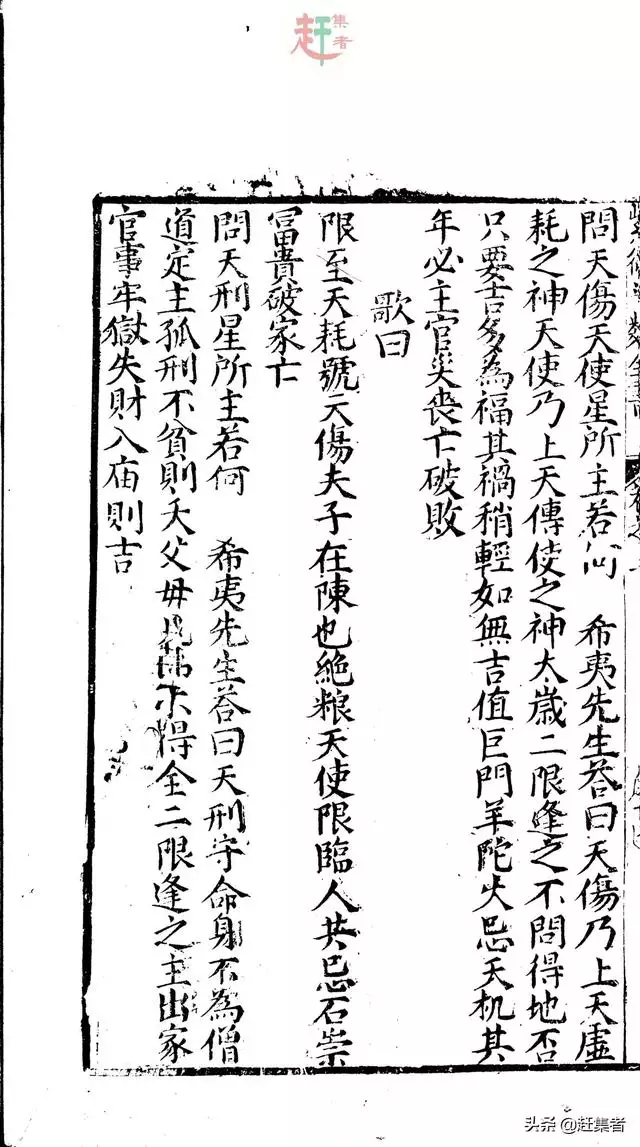 趕集者
問天傷天使星所主若何　希夷先生荅曰天傷乃上天虛
耗之神天使乃上天傳使之神太歲二限逢之不問得地否
只要吉多為福其禍稍輕如無吉值巨門羊陀火忌天机其
年必主官災喪亡破敗
歌曰
限至天耗號天傷夫子在陳也絕粮天使限臨人共忌石崇
冨貴破家亡
問天刑星所主若何　希夷先生荅曰天刑守命身不為僧
道定主孤刑不貧則夭父母兄弟不得全二限逢之主出家
官事牢獄失財入庙則吉
头条@赶集者